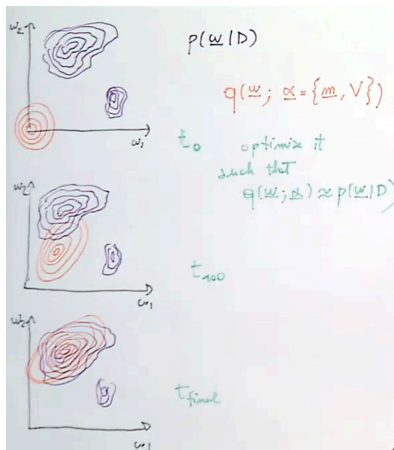 w₂
p(w|D)
q(w; α={m, V})
w₁
t₀ optimize it
such that
q(w; α) ≈ p(w|D)
w₂
t₁₀₀
w₁
w₂
t_final
w₁